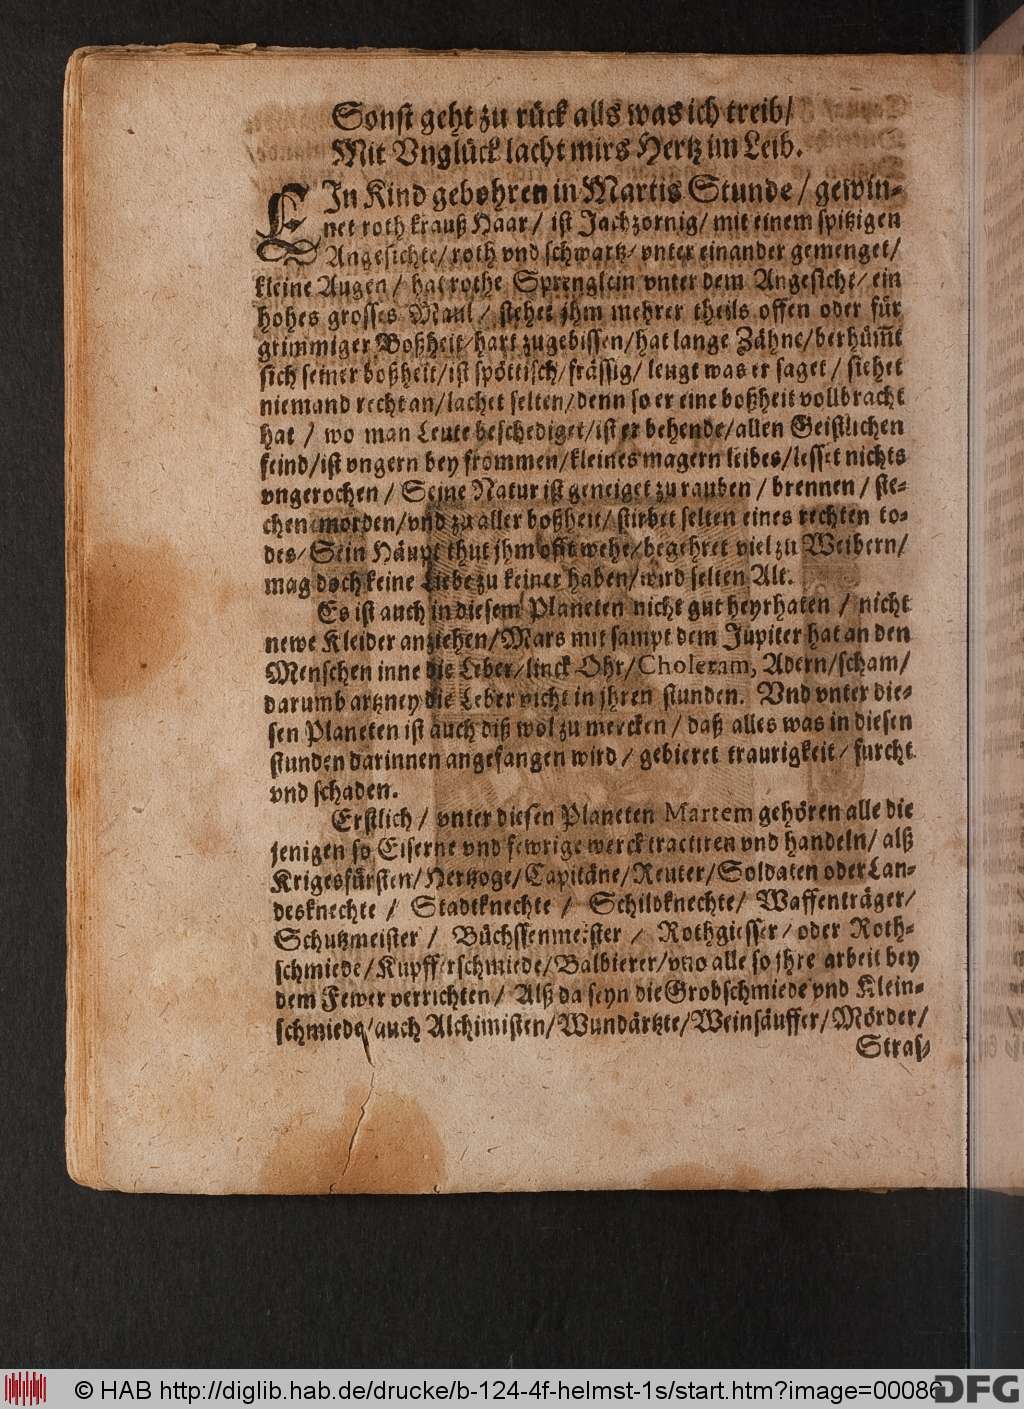 Sonst geht zu rück alls was ich treib/
Mit Vnglück lacht mirs Hertz im Leib.
EIn Kind gebohren in Martis Stunde / gewin-
net roth krauß Haar / ist Jachzornig / mit einem spitzigen
Angesichte / roth vnd schwartz / vnter einander gemenget /
kleine Augen / hat rothe Sprenglein vnter dem Angesicht / ein
hohes grosses Maul / stehet jhm mehrer theils offen oder für
grimmiger Boßheit / hart zugebissen / hat lange Zähne / berhüm̃t
sich seiner boßheit / ist spöttisch / frässig / leugt was er saget / siehet
niemand recht an / lachet selten / denn so er eine boßheit vollbracht
hat / wo man Leute beschediget / ist er behende / allen Geistlichen
feind / ist vngern bey frommen / kleines magern leibes / lesset nichts
vngerochen / Seine Natur ist geneiget zu rauben / brennen / ste-
chen morden / vnd zu aller boßheit / stirbet selten eines rechten to-
des / Sein Häupt thut jhm offt wehe / begehret viel zu Weibern /
mag doch keine Liebe zu keiner haben / wird selten Alt.
Es ist auch in diesem Planeten nicht gut heyrhaten / nicht
newe Kleider anziehen / Mars mit sampt dem Jupiter hat an den
Menschen inne die Leber / linck Ohr / Choleram, Adern / scham /
darumb artzney die Leber nicht in jhren stunden. Vnd vnter die-
sen Planeten ist auch diß wol zu mercken / daß alles was in diesen
stunden darinnen angefangen wird / gebieret traurigkeit / furcht
vnd schaden.
Erstlich / vnter diesen Planeten Martem gehören alle die
jenigen so Eiserne vnd fewrige werck tractiren vnd handeln / alß
Krigesfürsten / Hertzoge / Capitäne / Reuter / Soldaten oder Lan-
desknechte / Stadtknechte / Schildknechte / Waffenträger /
Schutzmeister / Büchssenmeister / Rothgiesser / oder Roth-
schmiede / Kupfferschmiede / Balbierer / vnd alle so jhre arbeit bey
dem Fewer verrichten / Alß da seyn die Grobschmiede vnd Klein-
schmiede / auch Alchimisten / Wundärtzte / Weinsäuffer / Mörder /
Stras-
© HAB http://diglib.hab.de/drucke/b-124-4f-helmst-1s/start.htm?image=00086
DFG